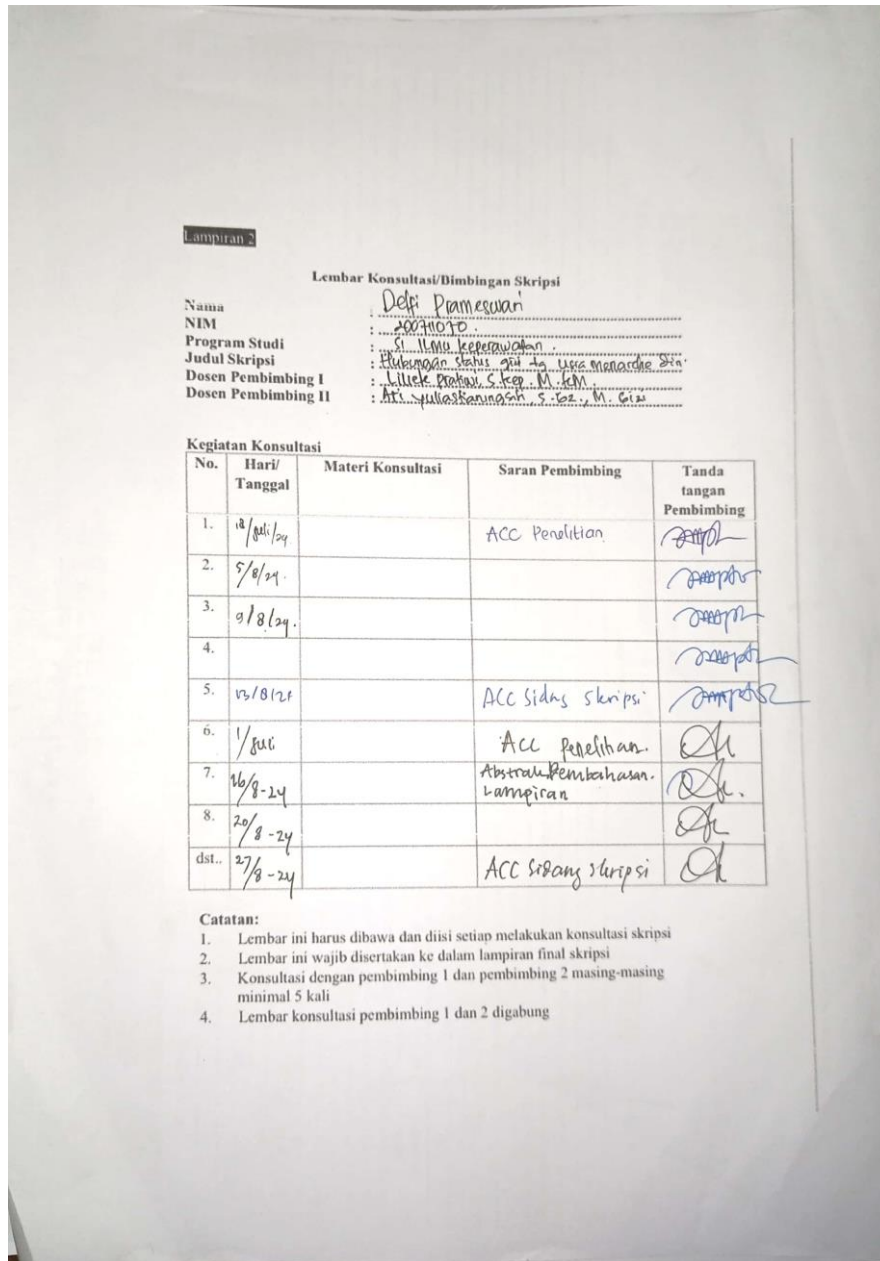 Lampiran 2
Lembar Konsultasi/Bimbingan Skripsi
Nama : Delfi Prameswari
NIM : 200711070.
Program Studi : S1 Ilmu Keperawatan.
Judul Skripsi : Hubungan status gizi dg usia menarche
Dosen Pembimbing I : Lilek Pratiwi, S.Kep. M.KM.
Dosen Pembimbing II : Ati S.Gz., M. Gizi
Kegiatan Konsultasi
No. Hari/ Materi Konsultasi Saran Pembimbing Tanda
Tanggal tangan
Pembimbing
1. 18/Juli/24 ACC Penelitian
2. 5/8/24.
3. 9/8/24.
4.
5. 13/8/24 ACC Sidang skripsi
6. 1/Juli ACC Penelitian.
7. 16/8-24 Abstrak, Pembahasan.
Lampiran
8. 20/8-24
dst.. 27/8-24 ACC Sidang skripsi
Catatan:
1. Lembar ini harus dibawa dan diisi setiap melakukan konsultasi skripsi
2. Lembar ini wajib disertakan ke dalam lampiran final skripsi
3. Konsultasi dengan pembimbing 1 dan pembimbing 2 masing-masing
minimal 5 kali
4. Lembar konsultasi pembimbing 1 dan 2 digabung